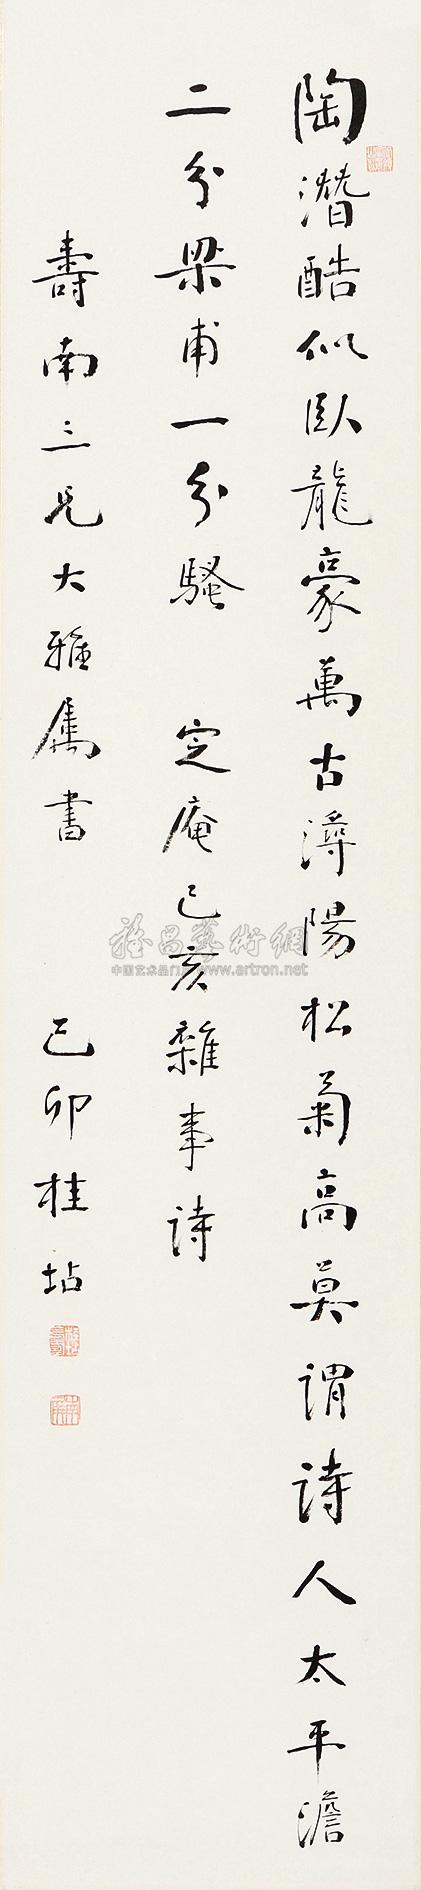 陶潛酷似臥龍豪萬古潯陽松菊高莫謂詩人太平澹
二分梁甫一分騷 定庵己亥雜事詩
壽南三兄大雅屬書 己卯桂坫
雅昌藝術網
中国艺术品门户 www.artron.net